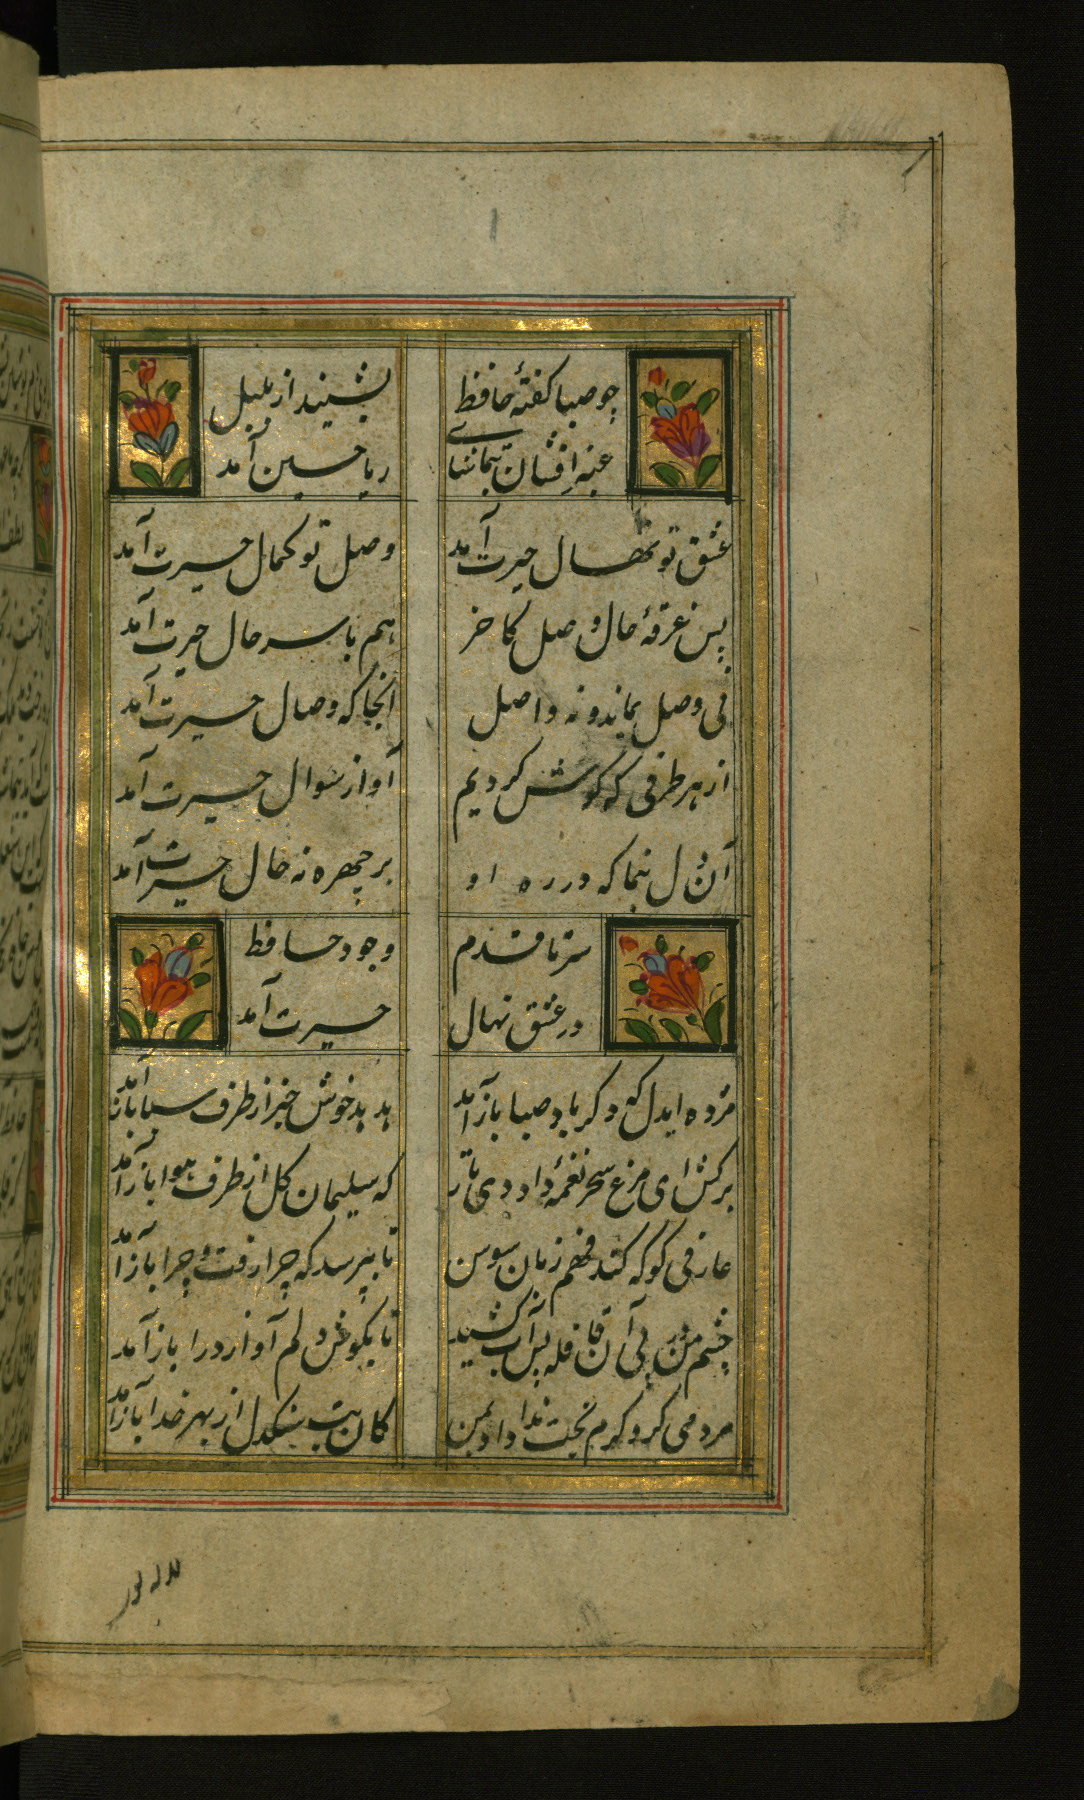 چو صبا گفتهٔ حافظ بشنید از بلبل
عنبر افشان بتماشای ریاحین آمد
عشق تو نهال حیرت آمد وصل تو کمال حیرت آمد
پس غرقهٔ حال وصل کاخر هم با سر حال حیرت آمد
نی وصل بماند و نه واصل آنجا که وصال حیرت آمد
از هر طرفی که گوش کردیم آواز سوال حیرت آمد
آن دل بنما که در ره او بر چهره نه خال حیرت آمد
سر تا قدم وجود حافظ
در عشق نهال حیرت آمد
مژده ایدل که دگر باد صبا باز آمد هدهد خوش خبر از طرف سبا باز آمد
برکش ای مرغ سحر نغمهٔ داودی باز که سلیمان گل از طرف هوا باز آمد
عارفی کو که کند فهم زبان سوسن تا بپرسد که چرا رفت و چرا باز آمد
چشم من در پی آن قافله بس آب کشید تا بگوش دلم آواز درا باز آمد
مردمی کرد و کرم بخت خدا داد بمن کان بت سنگدل از بهر خدا باز آمد